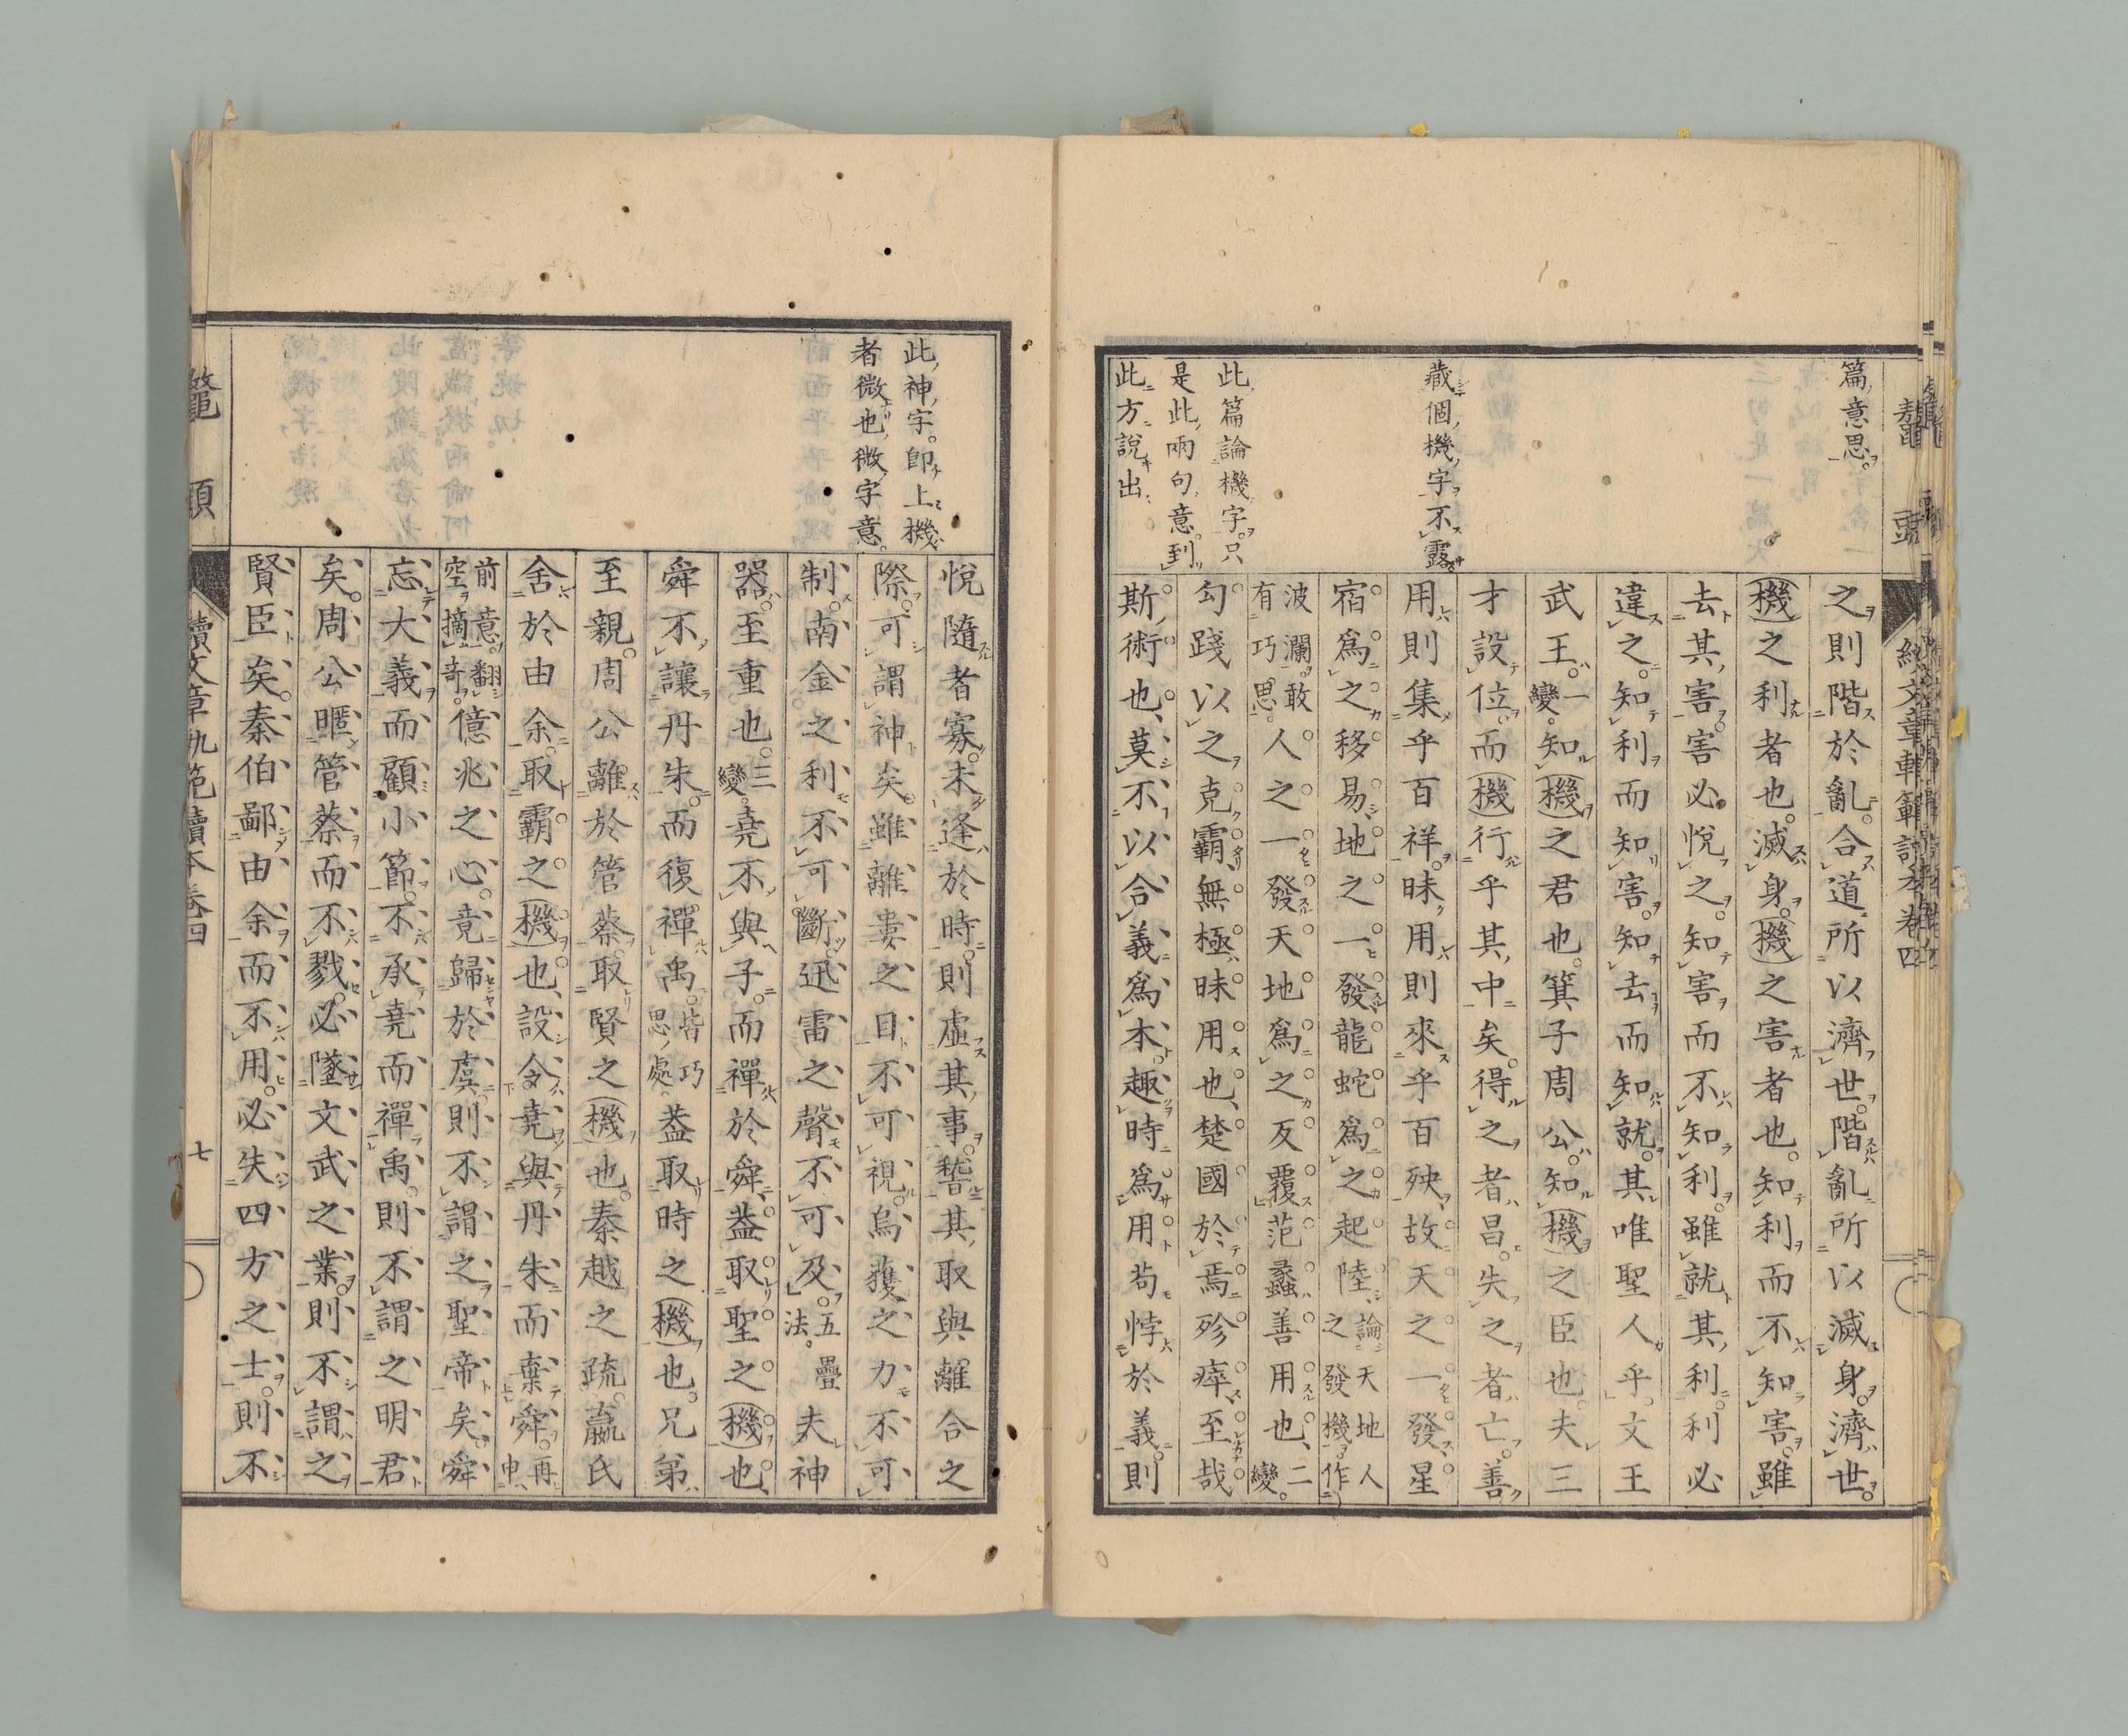 篇意思
藏個機字不露
此篇論機字只
是此兩句意到
此方說出
之則階於亂合道所以濟世階亂所以滅身濟世
機之利者也滅身機之害者也知利而不知害雖
去其害害必悅之知害而不知利雖就其利利必
違之知利而知害知去而知就其唯聖人乎文王
武王一變知機之君也箕子周公知機之臣也夫三
才設位而機行乎其中矣得之者昌失之者亡善
用則集乎百祥昧用則來乎百殃故天之一發星
宿爲之移易地之一發龍蛇爲之起陸論天地人之發機作
波瀾敢有巧思人之一發天地爲之反覆范蠡善用也二變
勾踐以之克霸無極昧用也楚國於焉殄瘁至哉
斯術也莫不以合義爲本趣時爲用苟悖於義則
此神字即上機
者微也微字意
悅隨者寡未逢於時則虛其事誓其取與離合之
際可謂神矣雖離婁之目不可視烏獲之力不可
制南金之利不可斷迅雷之聲不可及五疊法夫神
器至重也三變堯不與子而禪於舜蓋取聖之機也
舜不讓丹朱而復禪禹皆巧思處蓋取時之機也兄弟
至親周公離於管蔡取賢之機也秦越之疏嬴氏
舍於由余取霸之機也設令堯與丹朱而棄舜再申
前意翻空摘奇億兆之心竟歸於虞則不謂之聖帝矣舜
忘大義而顧小節不承堯而禪禹則不謂之明君
矣周公暱管蔡而不戮必墜文武之業則不謂之
賢臣矣秦伯鄙由余而不用必失四方之士則不
鼇頭
續文章軌範讀本卷四
七